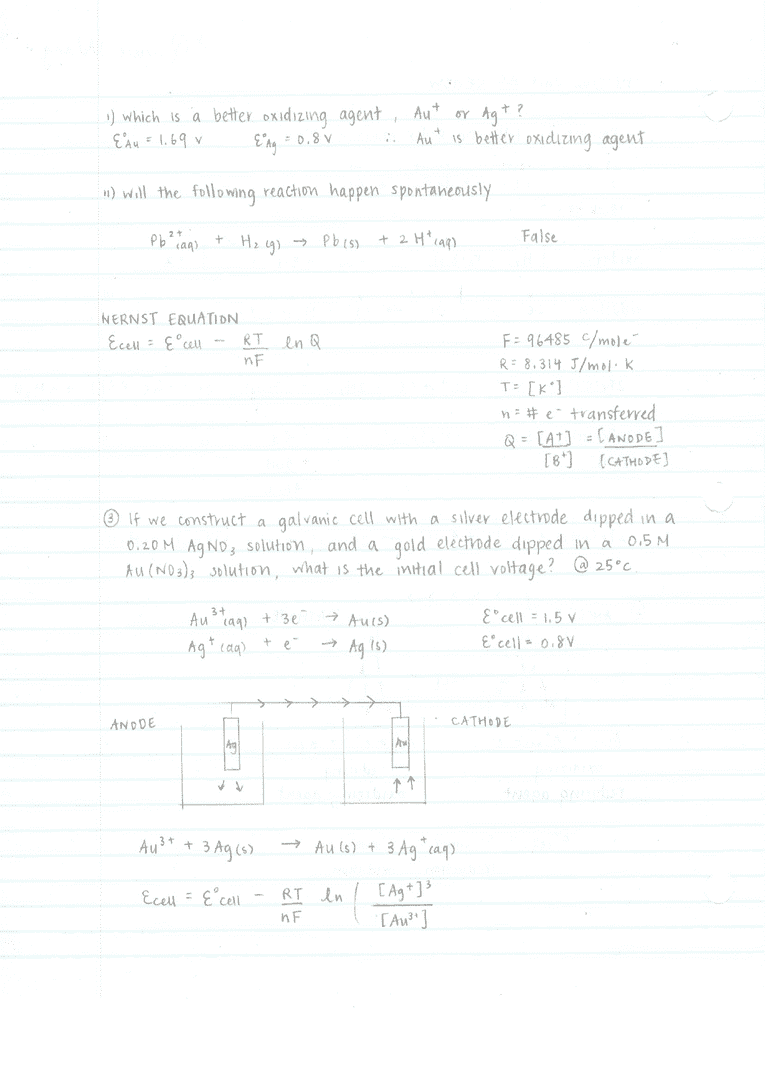 i) which is a better oxidizing agent, Au⁺ or Ag⁺ ?
Ɛ°Au = 1.69 v Ɛ°Ag = 0.8 v ∴ Au⁺ is better oxidizing agent
ii) will the following reaction happen spontaneously
Pb²⁺(aq) + H₂(g) → Pb(s) + 2H⁺(aq) False
NERNST EQUATION
Ɛcell = Ɛ°cell − RT/nF ln Q
F = 96485 C/mole⁻
R = 8.314 J/mol·K
T = [K°]
n = # e⁻ transferred
Q = [A+]/[B⁺] = [ANODE]/[CATHODE]
③ If we construct a galvanic cell with a silver electrode dipped in a
0.20 M AgNO₃ solution, and a gold electrode dipped in a 0.5 M
Au(NO₃)₃ solution, what is the initial cell voltage? @ 25°c
Au³⁺(aq) + 3e⁻ → Au(s) Ɛ°cell = 1.5 v
Ag⁺(aq) + e⁻ → Ag(s) Ɛ°cell = 0.8V
ANODE Ag Au CATHODE
Au³⁺ + 3Ag(s) → Au(s) + 3Ag⁺(aq)
Ɛcell = Ɛ°cell − RT/nF ln ( [Ag+]³/[Au³⁺]